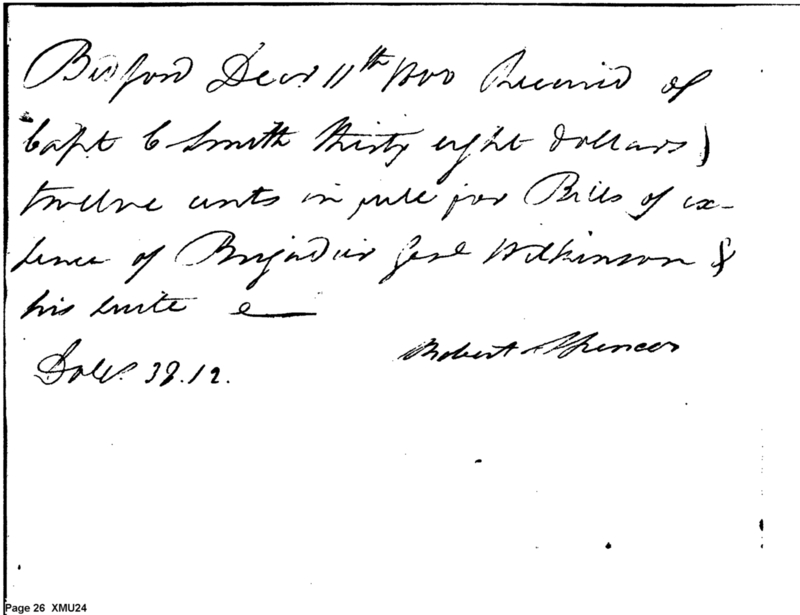 Bedford Decr 11th 1800 Received of
Capt C Smith thirty eight dollars
twelve cents in full for Bills of ex-
pence of Brigadier Genl Wilkinson &
his suite
Robert Spencer
Dolls 38.12.
Page 26 XMU24